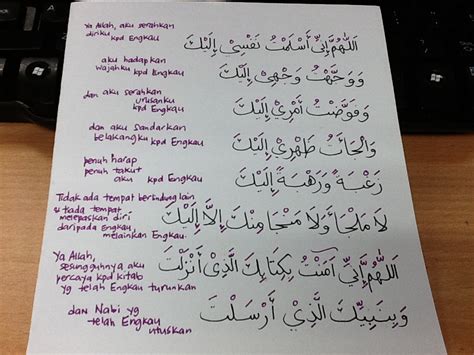 Ya Allah, aku serahkan
diriku
kpd Engkau
اَللّٰهُمَّ إِنِّيْ أَسْلَمْتُ نَفْسِيْ إِلَيْكَ
aku hadapkan
wajahku kpd Engkau
وَوَجَّهْتُ وَجْهِيْ إِلَيْكَ
dan aku serahkan
urusanku
kpd Engkau
وَفَوَّضْتُ أَمْرِيْ إِلَيْكَ
dan aku sandarkan
belakangku kpd Engkau
وَالْجَأْتُ ظَهْرِيْ إِلَيْكَ
penuh harap
penuh takut
aku kpd Engkau
رَغْبَةً وَرَهْبَةً إِلَيْكَ
Tidak ada tempat berlindung lain
& tada tempat
melepaskan diri
daripada Engkau,
melainkan Engkau.
لَا مَلْجَأَ وَلَا مَنْجَا مِنْكَ إِلَّا إِلَيْكَ
Ya Allah,
sesungguhnya aku
percaya kpd kitab
yg telah Engkau turunkan
اَللّٰهُمَّ إِنِّيْ آمَنْتُ بِكِتَابِكَ الَّذِيْ أَنْزَلْتَ
dan Nabi yg
telah Engkau
utuskan
وَبِنَبِيِّكَ الَّذِيْ أَرْسَلْتَ